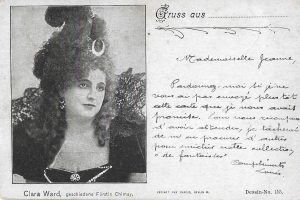 Gruss aus
Mademoiselle Jeanne
Pardonnez-moi si je ne
vous ai pas envoyé plus tôt
cette carte que je vous avait
promise. Vous vous
d'avoir attendre, je tâcherai
de m'en procurer d'autres
pour votre collection
"de fantaisies"
Compliments
Louis
Clara Ward, geschiedene Fürstin Chimay.
Dessin-No. 155.